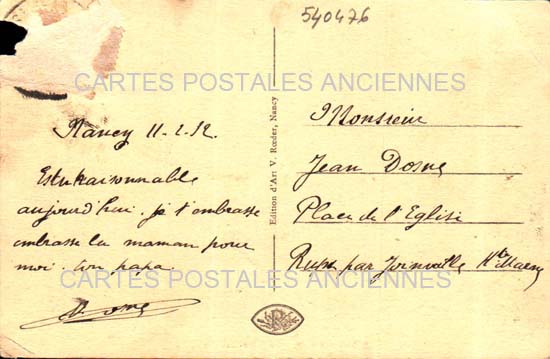 540476
CARTES POSTALES ANCIENNES
Nancy 11-2-12.
Es tu raisonnable
aujourd'hui. je t'embrasse
embrasse la maman pour
moi ton papa.
Edition d'Art V. Rœder, Nancy
Monsieur
Jean Dosne
Place de l'Eglise
Rupt par Joinville Hte Marne
CARTES POSTALES ANCIENNES